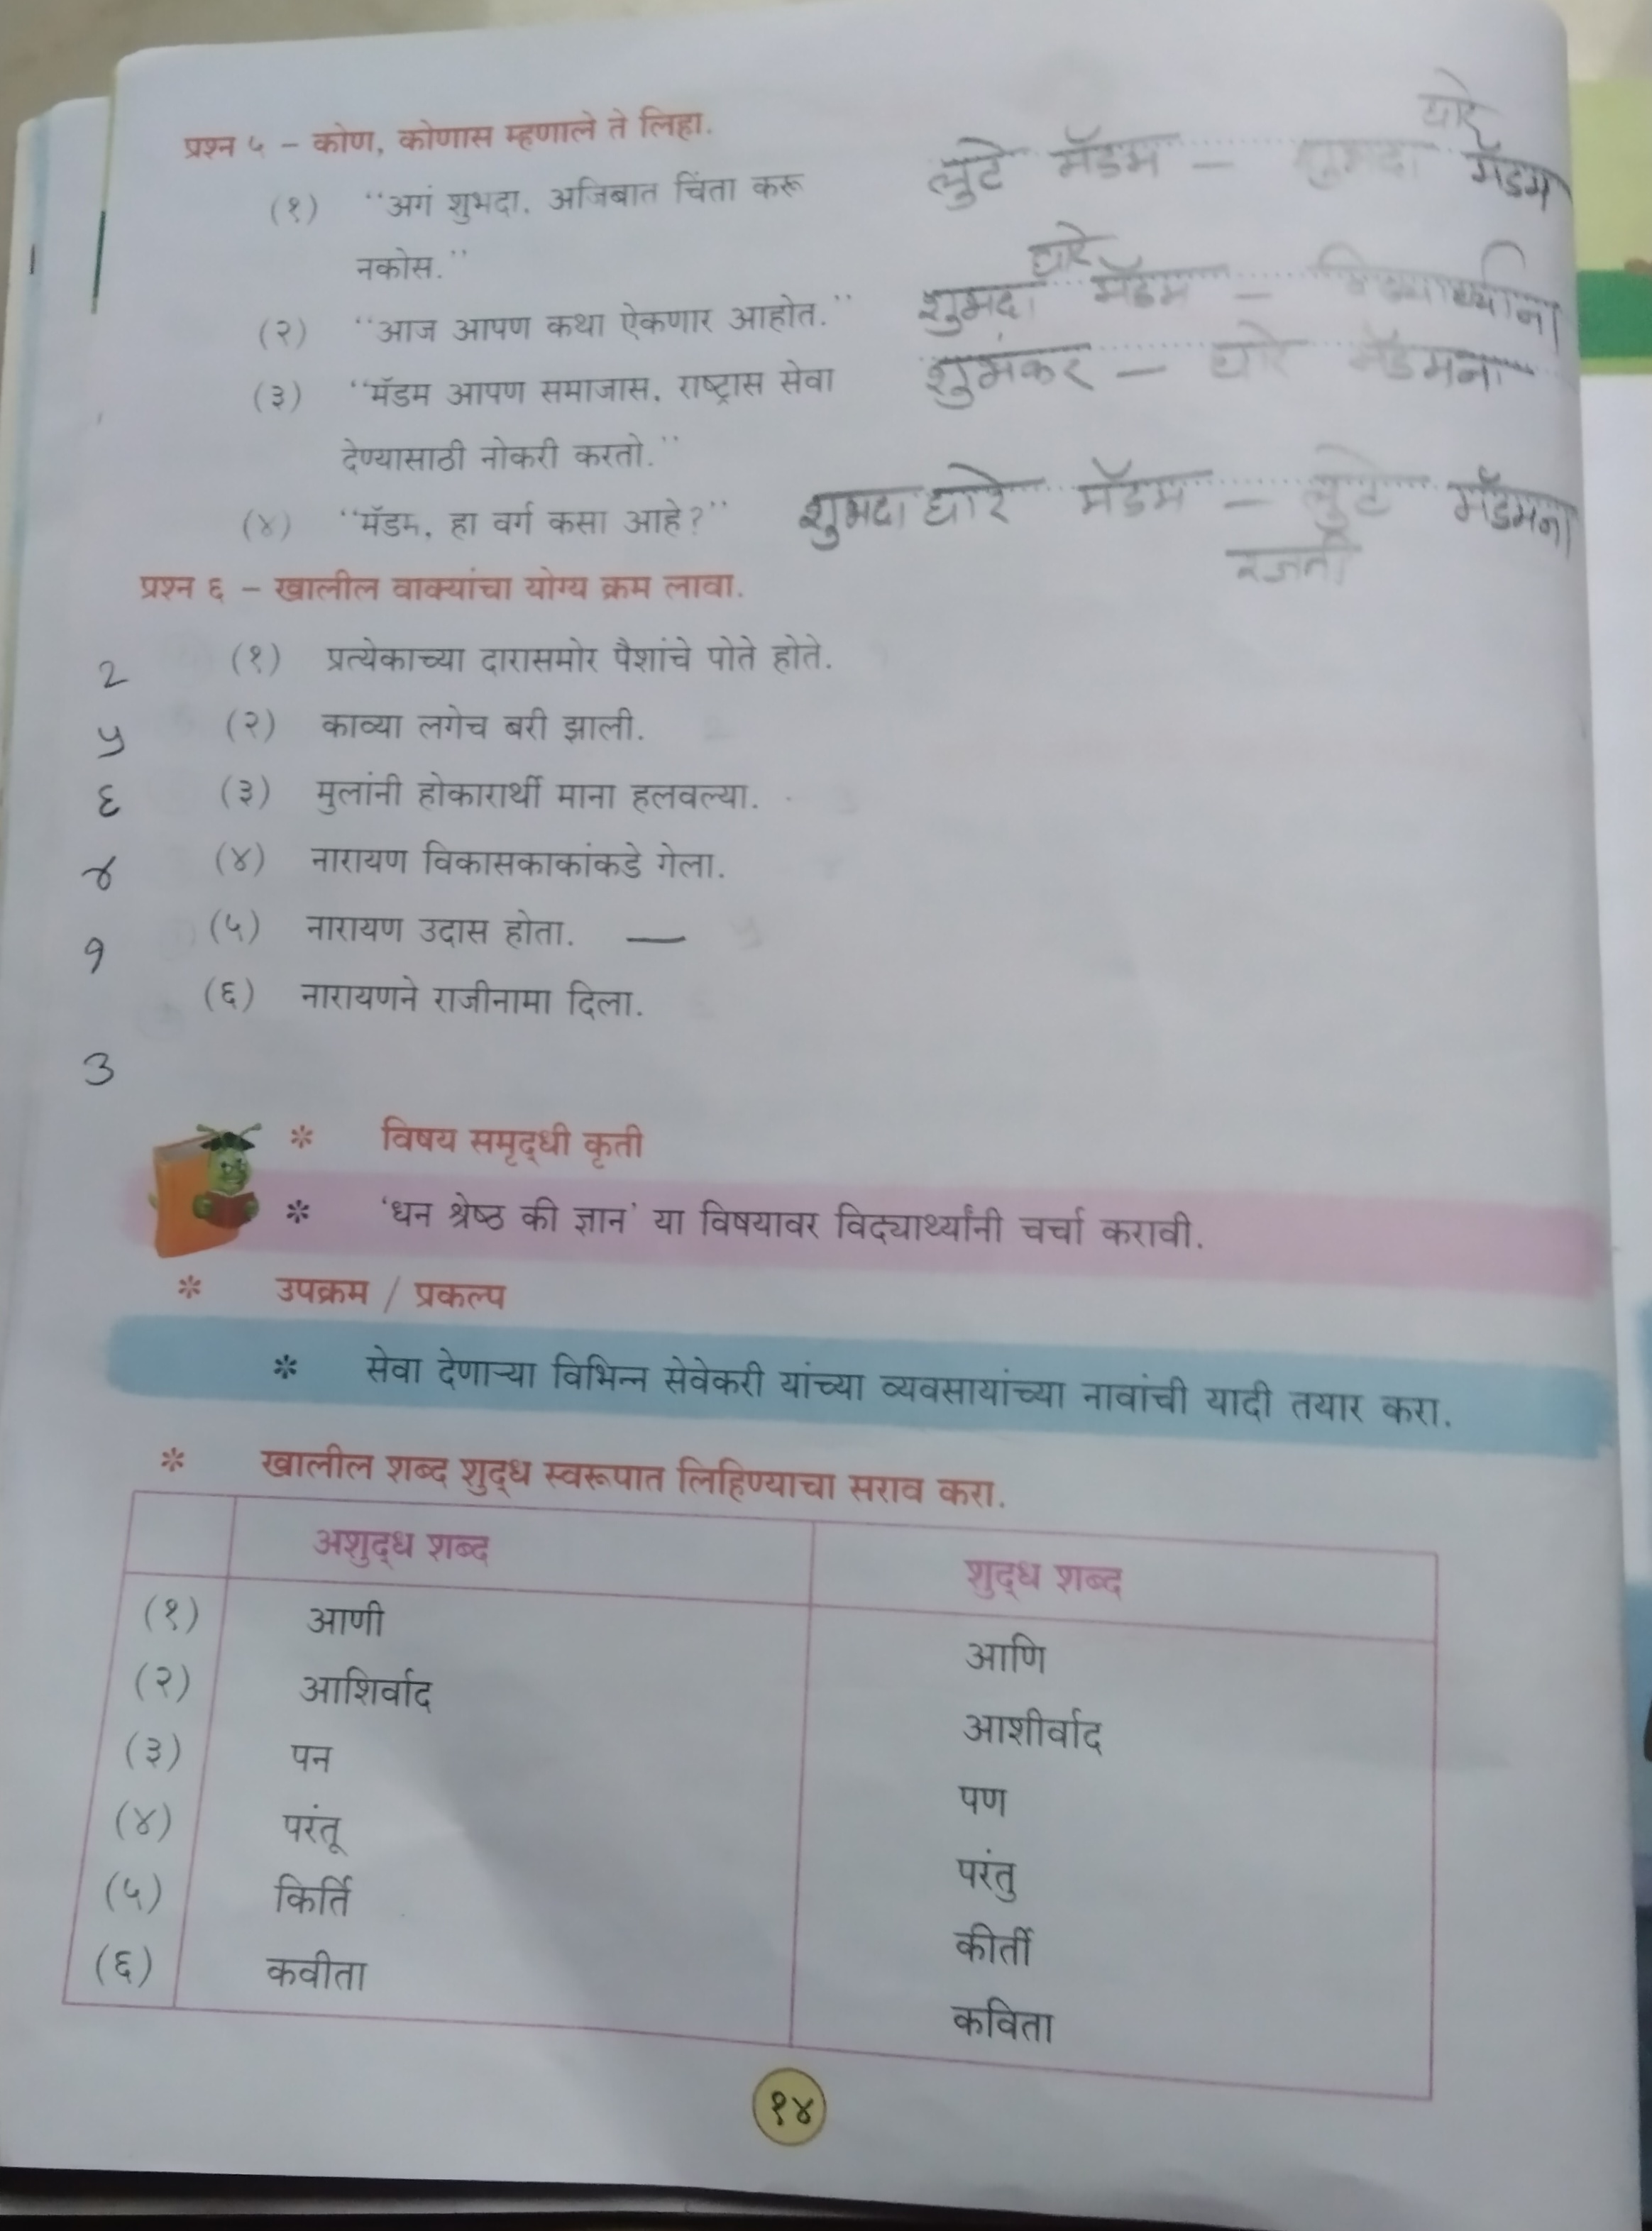 प्रश्न ५ – कोण, कोणास म्हणाले ते लिहा.
घारे
(१) “अगं शुभदा, अजिबात चिंता करू लुटे मॅडम – शुभदा मॅडम
नकोस.”
घारे
(२) “आज आपण कथा ऐकणार आहोत.” शुभदा मॅडम – विद्यार्थ्यांना
(३) “मॅडम आपण समाजास, राष्ट्रास सेवा शुभंकर – घारे मॅडमना
देण्यासाठी नोकरी करतो.”
(४) “मॅडम, हा वर्ग कसा आहे?” शुभदा घारे मॅडम – लुटे मॅडमना
प्रश्न ६ – खालील वाक्यांचा योग्य क्रम लावा.
२ (१) प्रत्येकाच्या दारासमोर पैशांचे पोते होते.
५ (२) काव्या लगेच बरी झाली.
६ (३) मुलांनी होकारार्थी माना हलवल्या.
४ (४) नारायण विकासकाकांकडे गेला.
१ (५) नारायण उदास होता. —
(६) नारायणने राजीनामा दिला.
3
* विषय समृद्धी कृती
* ‘धन श्रेष्ठ की ज्ञान’ या विषयावर विद्यार्थ्यांनी चर्चा करावी.
* उपक्रम / प्रकल्प
* सेवा देणाऱ्या विभिन्न सेवेकरी यांच्या व्यवसायांच्या नावांची यादी तयार करा.
* खालील शब्द शुद्ध स्वरूपात लिहिण्याचा सराव करा.
अशुद्ध शब्द शुद्ध शब्द
(१) आणी आणि
(२) आशिर्वाद आशीर्वाद
(३) पन पण
(४) परंतू परंतु
(५) किर्ति कीर्ती
(६) कवीता कविता
१४